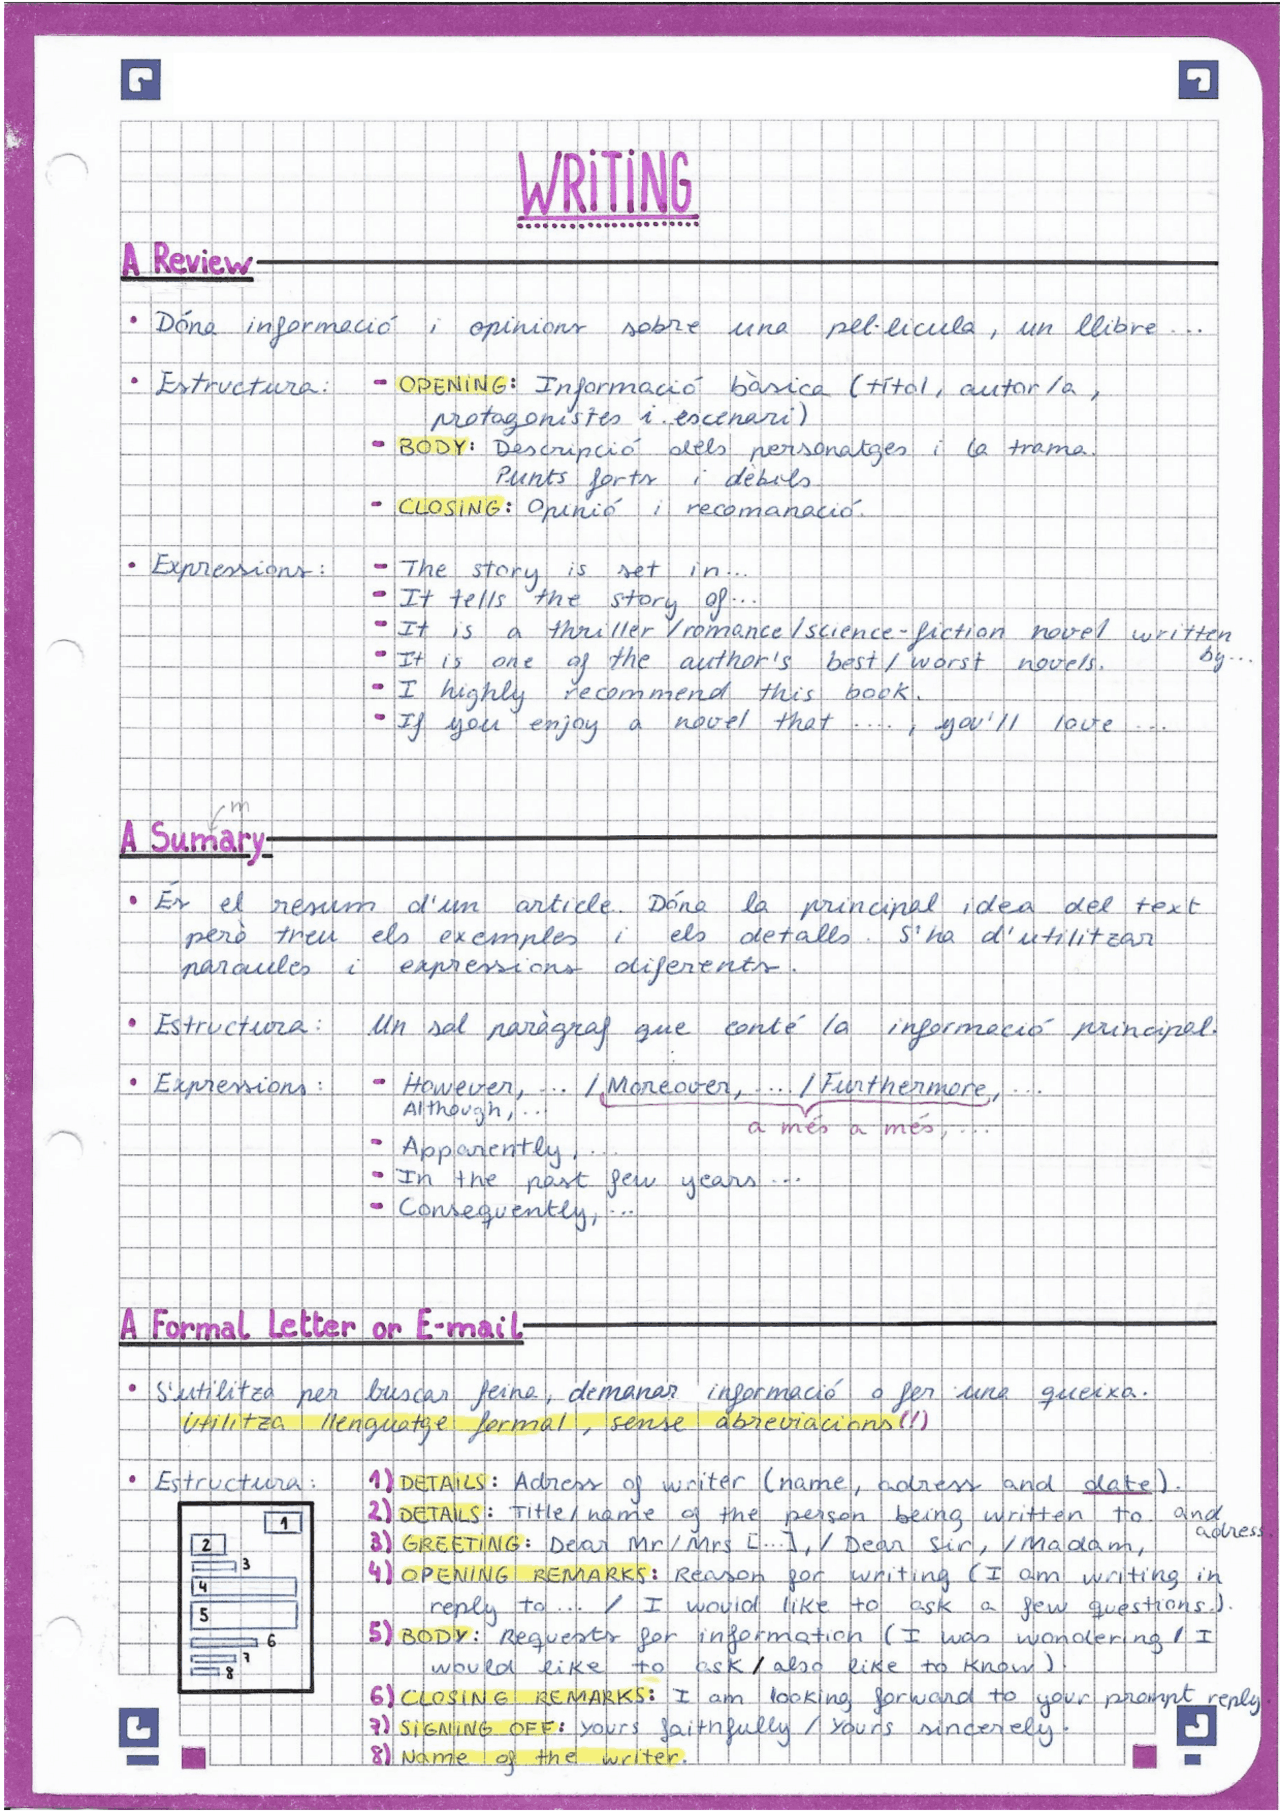 WRITING
A Review
• Dóna informació i opinions sobre una pel·lícula, un llibre ...
• Estructura: - OPENING: Informació bàsica (títol, autor/a,
protagonistes i escenari)
- BODY: Descripció dels personatges i la trama.
Punts forts i dèbils
- CLOSING: Opinió i recomanació.
• Expressions: - The story is set in...
- It tells the story of...
- It is a thriller/romance/science-fiction novel written
by...
- It is one of the author's best/worst novels.
- I highly recommend this book.
- If you enjoy a novel that ...., you'll love ...
m
A Sumary
• És el resum d'un article. Dóna la principal idea del text
però treu els exemples i els detalls. S'ha d'utilitzar
paraules i expressions diferents.
• Estructura: Un sol paràgraf que conté la informació principal.
• Expressions: - However, ... / Moreover, .... / Furthermore, ...
Although, ...
a més a més, ...
- Apparently, ...
- In the past few years ...
- Consequently, ...
A Formal Letter or E-mail
• S'utilitza per buscar feina, demanar informació o fer una queixa.
Utilitza llenguatge formal, sense abreviacions(!)
• Estructura: 1) DETAILS: Adress of writer (name, adress and date).
2) DETAILS: Title/name of the person being written to and
adress.
3) GREETING: Dear Mr/Mrs [...], / Dear Sir, /Madam,
4) OPENING REMARKS: Reason for writing (I am writing in
reply to ... / I would like to ask a few questions.).
5) BODY: Requests for information (I was wondering / I
would like to ask / also like to know)
6) CLOSING REMARKS: I am looking forward to your prompt reply
7) SIGNING OFF: yours faithfully / yours sincerely.
8) Name of the writer.
1
2
3
4
5
6
7
8